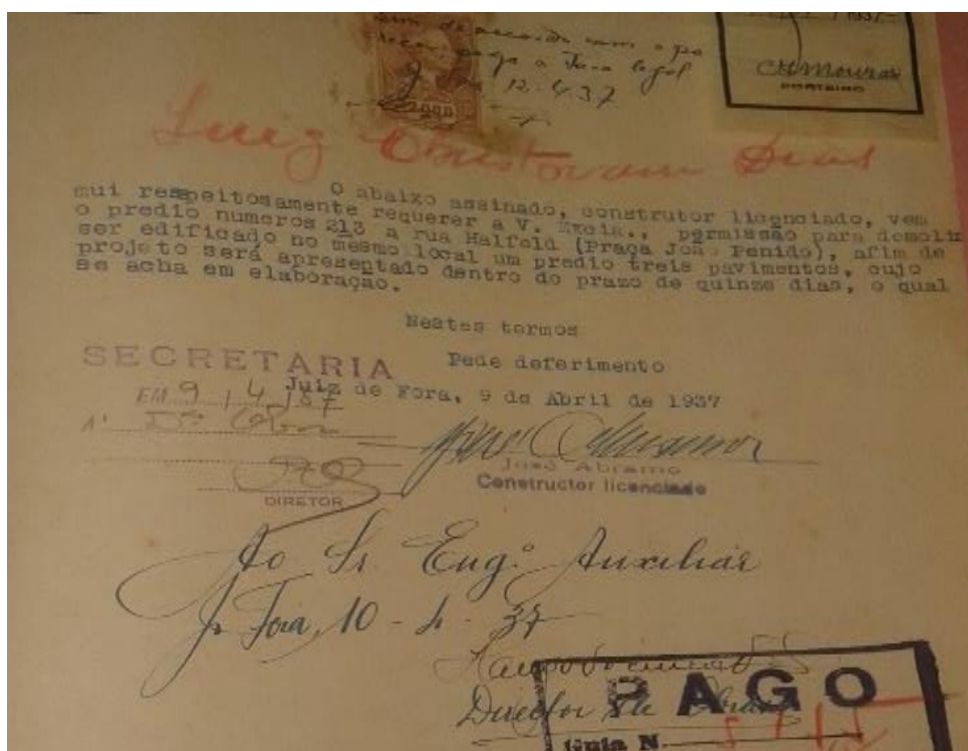 de accordo com o
paga a Taxa legal
12-4-37
1937
PORTEIRO
Luiz Christovam Dias
O abaixo assinado, construtor licenciado, vem
mui respeitosamente requerer a V. Excia., permissão para demolir
o predio numeros 213 a rua Halfeld (Praça João Penido), afim de
ser edificado no mesmo local um predio treis pavimentos, cujo
projeto será apresentado dentro do prazo de quinze dias, o qual
se acha em elaboração.
Nestes termos
Pede deferimento
SECRETARIA
Juiz de Fora, 9 de Abril de 1937
EM 9/4/37
José Abramo
Constructor licenciado
DIRETOR
Ao Sr. Eng.º Auxiliar
J. Fora, 10-4-37
Director de Obras
PAGO
Guia N.